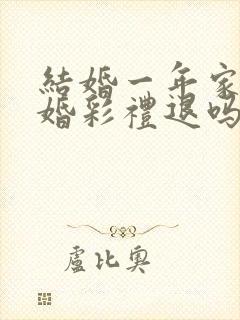 結婚一年家
婚彩禮退嗎
盧比奧